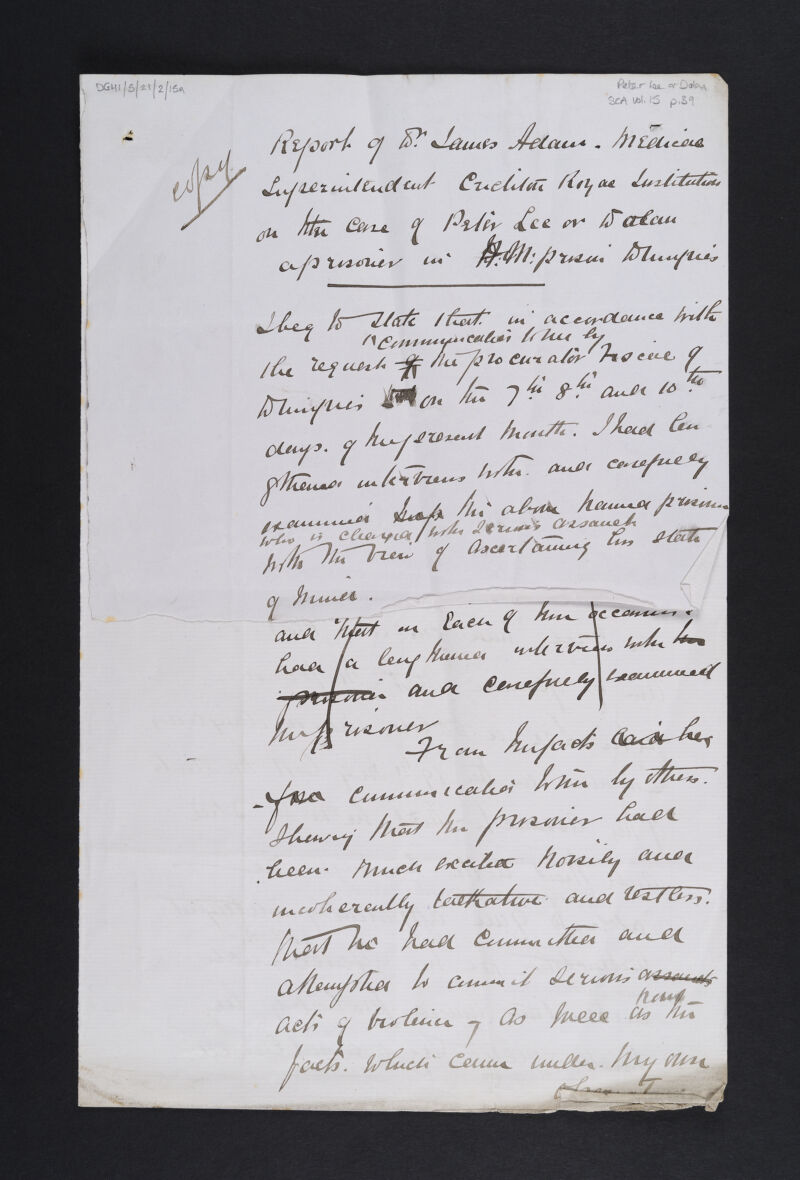 DGH1/5/21/2/15a
Peter Lee or Dolan
SCA Vol. 15 p.39
copy
Report of Dr James Adam. Medical
Superintendent Crichton Royal Institution
on the case of Peter Lee or Dolan
a prisoner in H.M. prison Dumfries
I beg to state that in accordance with
communicated to me by
the request of the procurator Fiscal of
Dumfries on the 7th 8th and 10th
days. of the present month. I had len
gthened interviews with. and carefully
examined the above named prisoner
who is charged with serious assault
with the view of ascertaining his state
of mind.
and that on Each of the occasions.
had a lengthened interview with the
prisoner and carefully examined
the prisoner
From the facts
communicated to me by others.
Shewing that the prisoner had
been. much excited noisily and
incoherently talkative and restless.
that he had committed and
attempted to commit serious assaults
acts of violence, as well as the
from
facts. which came under. my own